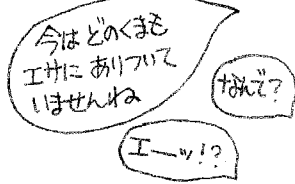 今はどのくまも
エサにありついて
いませんね
なんで?
エーッ!?